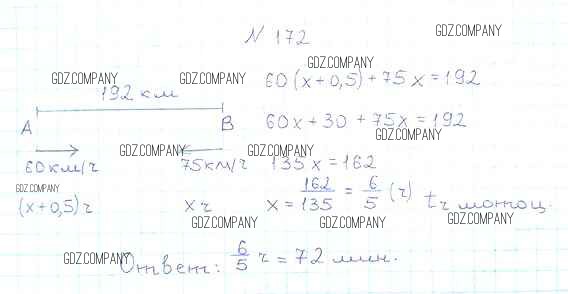 N 172
GDZ.COMPANY
GDZ.COMPANY
GDZ.COMPANY GDZ.COMPANY 60(x+0,5)+75x=192
192 км
A B 60x+30+75x=192
GDZ.COMPANY
GDZ.COMPANY GDZ.COMPANY
60км/ч 75км/ч 135x=162
GDZ.COMPANY
(x+0,5)ч xч x=162/135=6/5(ч) t мотоц.
GDZ.COMPANY GDZ.COMPANY GDZ.COMPANY
GDZ.COMPANY
Ответ: 6/5 ч = 72 мин.